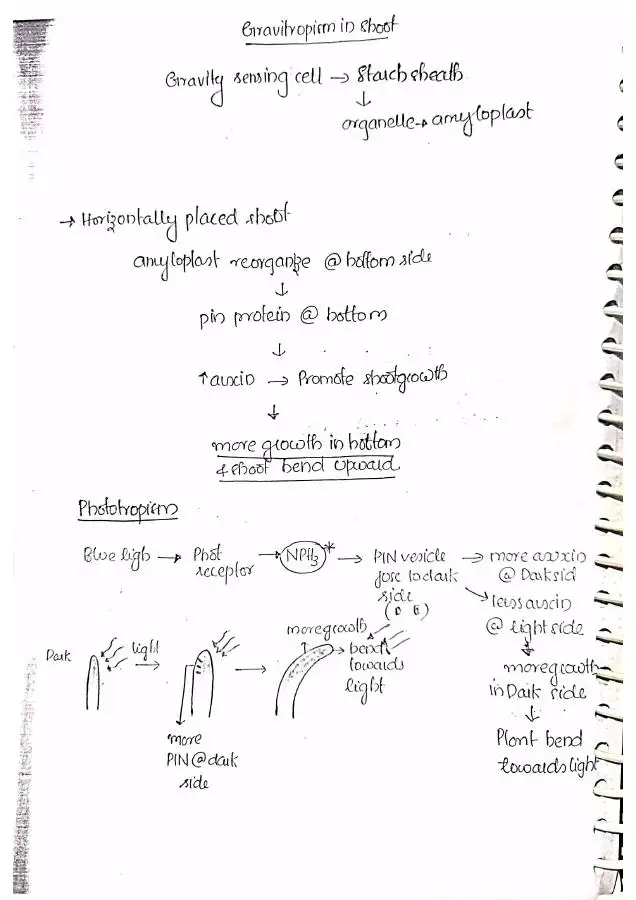 Gravitropism in shoot
Gravity sensing cell → Starch sheath
↓
organelle → amyloplast
→ Horizontally placed shoot
amyloplast reorganize @ bottom side
↓
pin protein @ bottom
↓
↑ auxin → Promote shoot growth
↓
more growth in bottom
& shoot bend upward
Phototropism
Blue ligh → Phot receptor → NPH3* → PIN vesicle fuse to dark side
→ more auxin @ Dark sid
↘ less auxin @ light side
↓
more growth in Dark side
↓
Plant bend towards light
Dark
light →
more PIN @ dark side
→
more growth
↑ → bend towards light